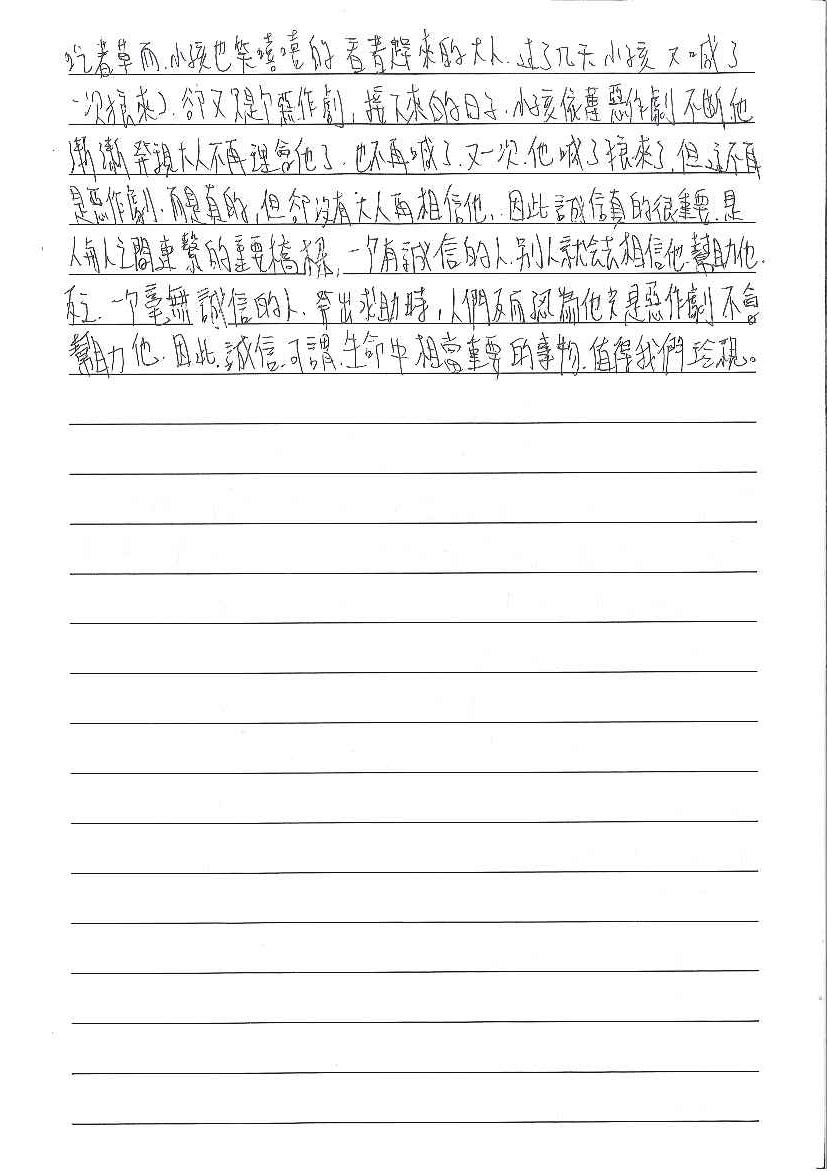 吃着草而,小孩也笑嘻嘻的看着趕來的大人.过了几天小孩又喊了
一次狼來了,卻又只是个惡作劇,接下來的日子,小孩依舊惡作劇不斷,他
漸漸發現大人不再理會他了.也不再喊了.又一次.他喊了狼來了,但這不再
是惡作劇.而是真的,但卻沒有大人再相信他,因此誠信真的很重要.是
人與人之間連繫的重要橋樑,一个有誠信的人.別人就会去相信他.幫助他.
反之.一个毫無誠信的人.發出求助時,人們反而認為他只是惡作劇不會
幫助他.因此.誠信.可謂.生命中相當重要的事物.值得我們珍視。